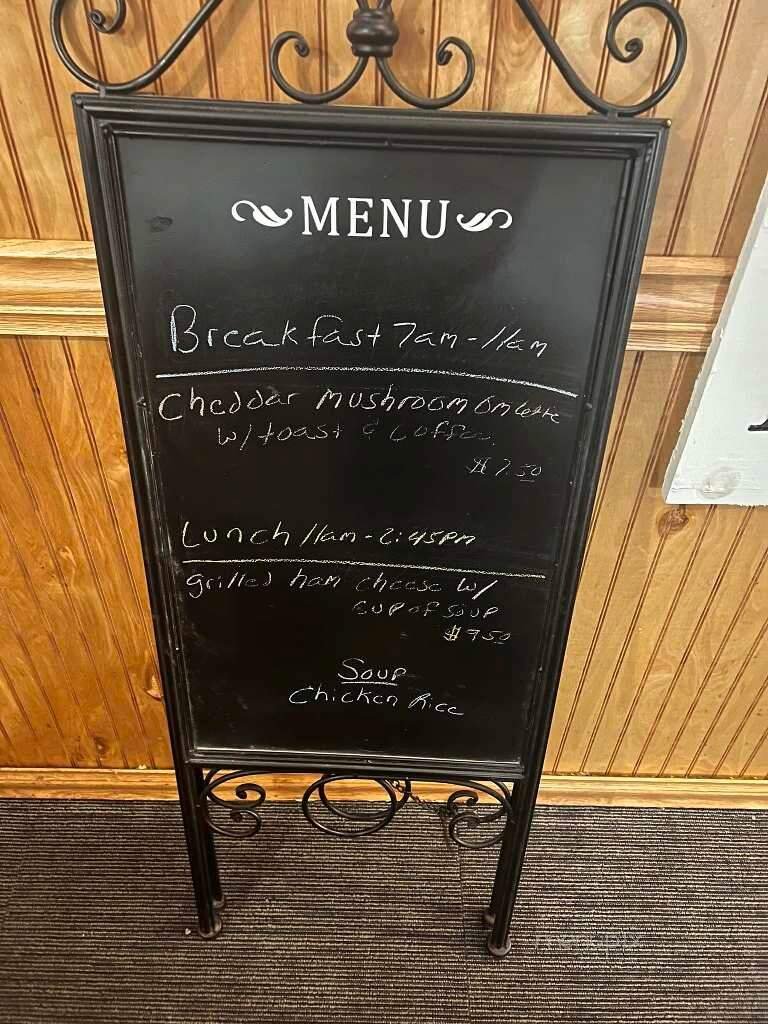 MENU
Breakfast 7am-11am
Cheddar mushroom omlette
w/toast & coffee
$7.50
Lunch 11am-2:45pm
grilled ham cheese w/
cup of soup
$9.50
Soup
Chicken Rice
menupix